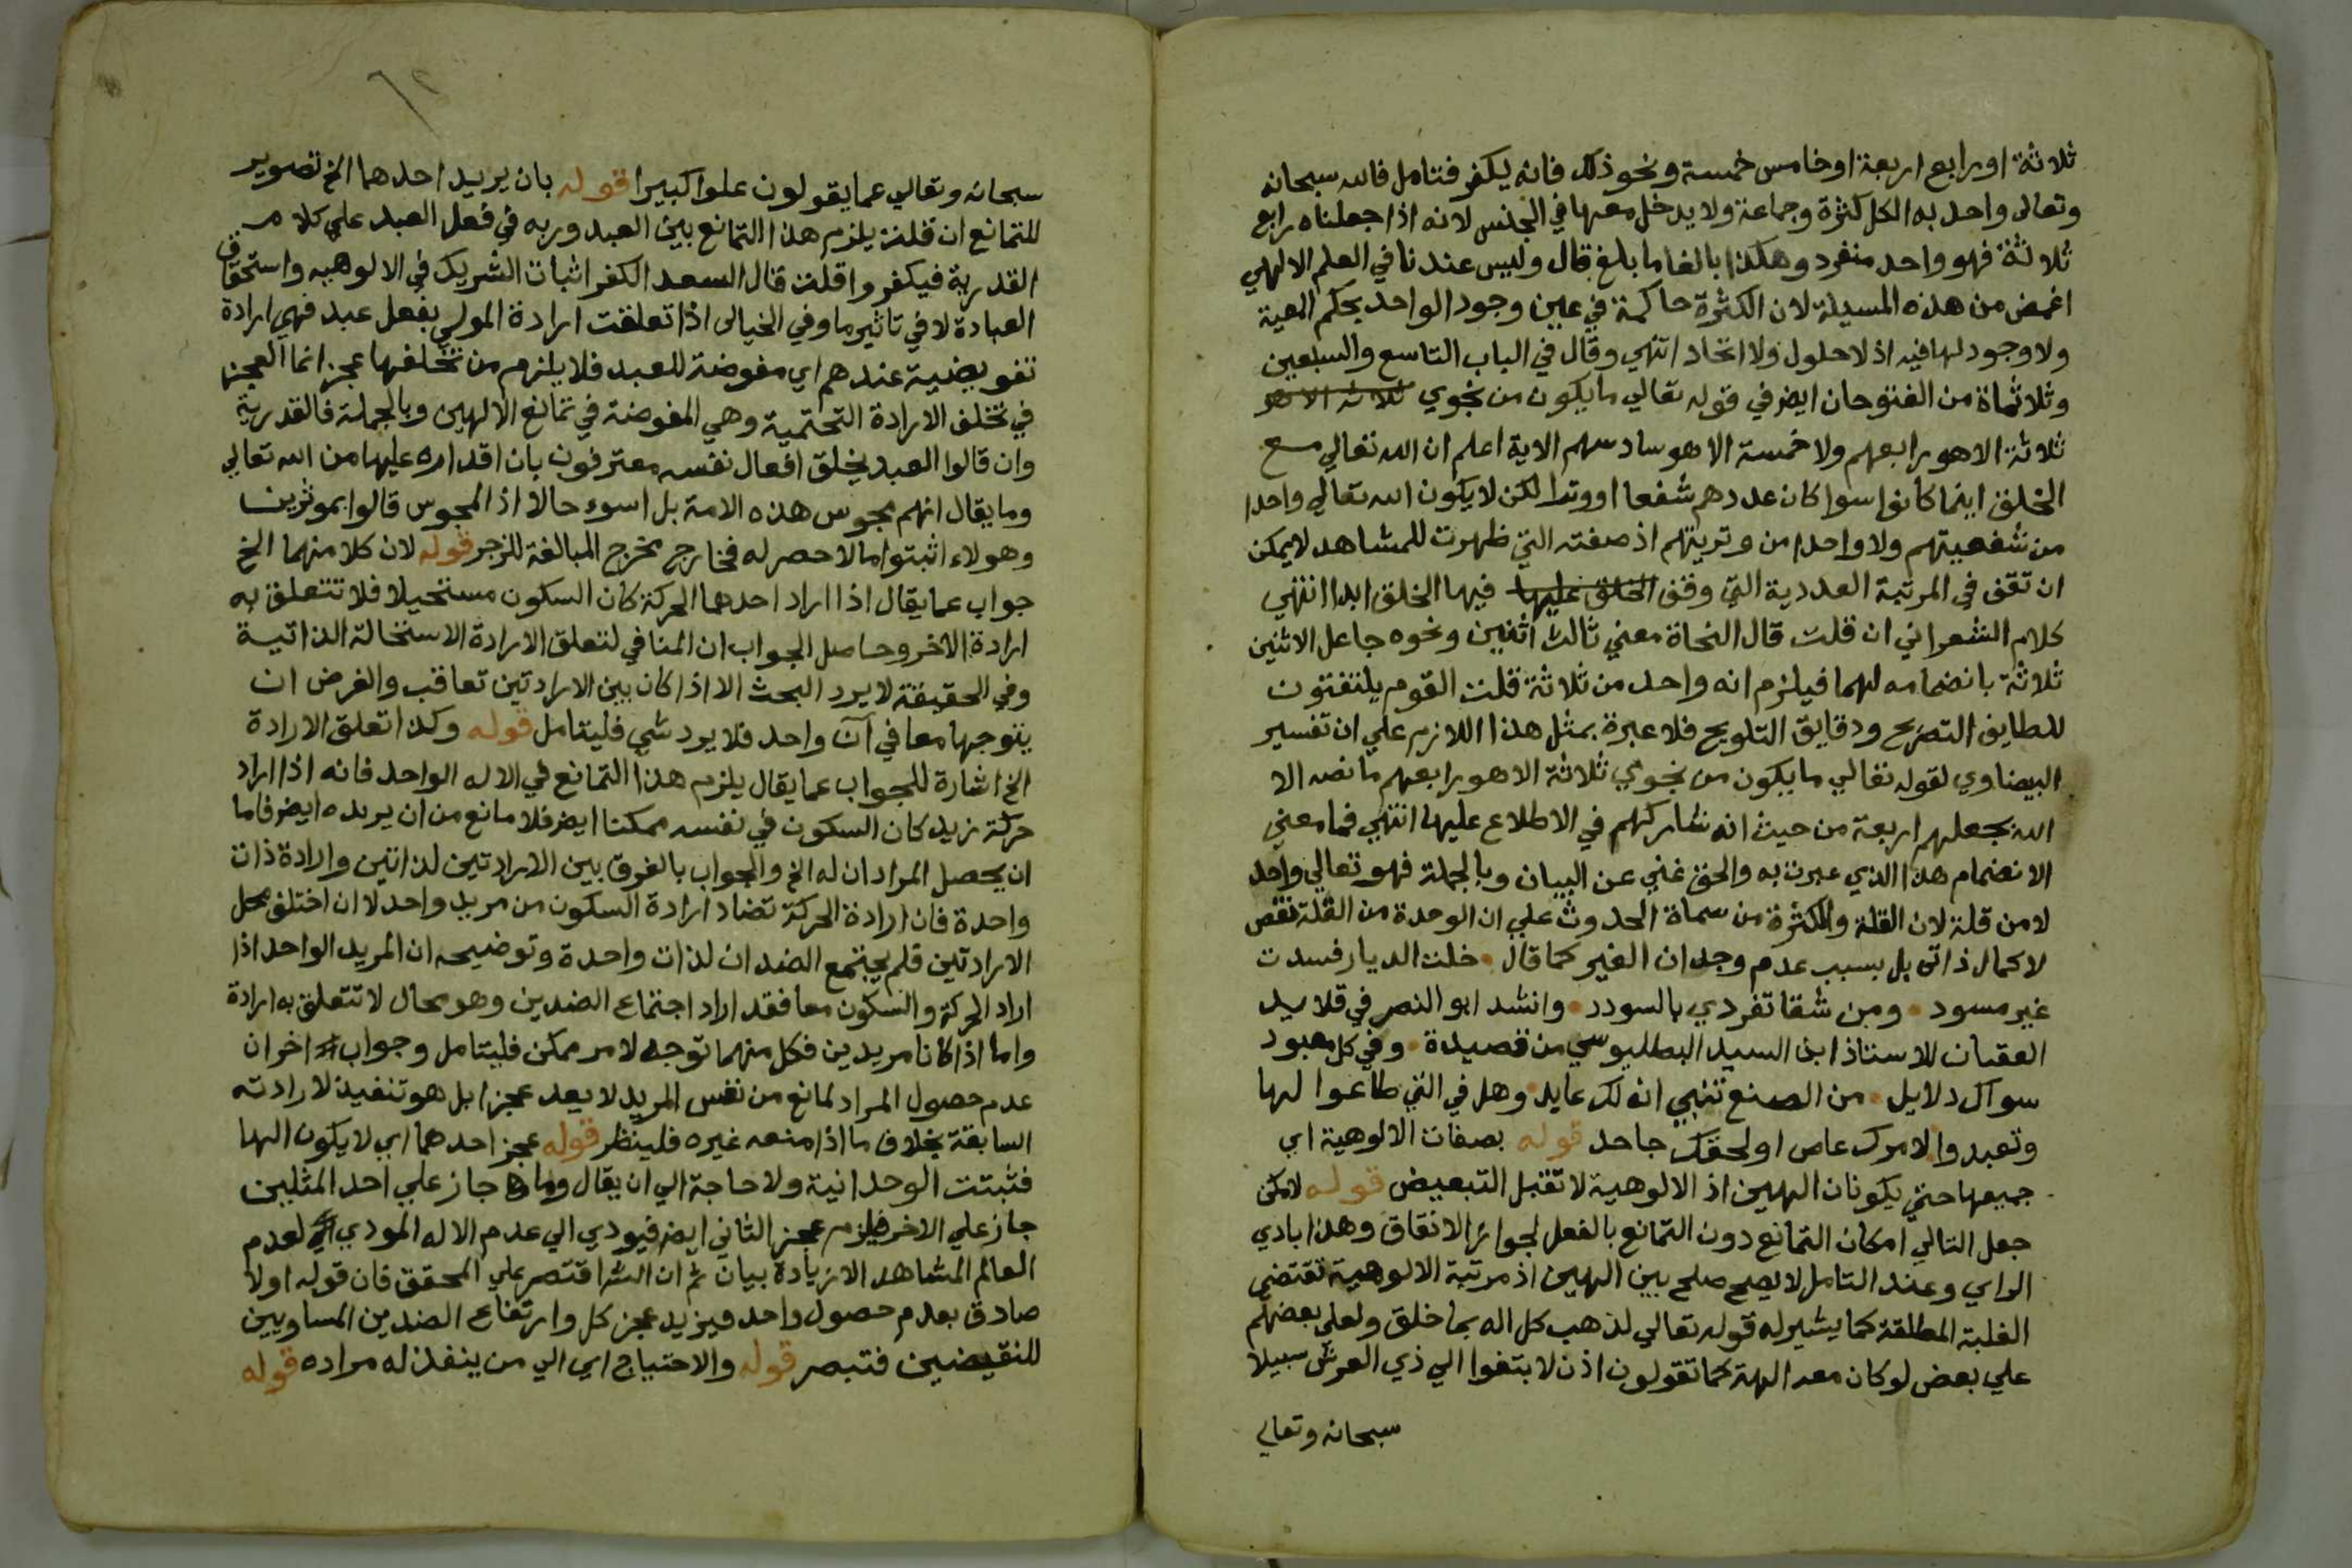 ثلاثة او رابع اربعة او خامس خمسة ونحو ذلك فانه يكفر فتامل فالله سبحانه
وتعالى واحد به الكل كثرة وجماعة ولا يدخل معها في الجنس لانه اذا جعلناه رابع
ثلاثة فهو واحد منفرد وهكذا بالغا ما بلغ قال وليس عندنا في العلم الالهي
اغمض من هذه المسيلة لان الكثرة حاكمة في عين وجود الواحد بحكم المعية
ولا وجود لها فيه اذ لا حلول ولا اتحاد انتهي وقال في الباب التاسع والسبعين
وثلاثماة من الفتوحات ايضر في قوله تعالي ما يكون من نجوي ثلاثة الا هو
ثلاثة الا هو رابعهم ولا خمسة الا هو سادسهم الاية اعلم ان الله تعالي مع
الخلق اينما كانوا سوا كان عددهم شفعا او وترا لكن لا يكون الله تعالي واحدا
من شفعيتهم ولا واحدا من وتريتهم اذ صفته التي ظهرت للمشاهد لا يمكن
ان تقف في المرتبة العددية التي وقف الخلق عليها فيها الخلق ابدا انتهي
كلام الشعراني ان قلت قال النحاة معني ثالث اثنين ونحوه جاعل الاثنين
ثلاثة بانضمامه لهما فيلزم انه واحد من ثلاثة قلت القوم يلتفتون
للطايف التصريح ودقايق التلويح فلا عبرة بمثل هذا اللازم علي ان تفسير
البيضاوي لقوله تعالي ما يكون من نجوي ثلاثة الا هو رابعهم ما نصه الا
الله يجعلهم اربعة من حيث انه شاركهم في الاطلاع عليها انتهي فما معني
الانضمام هذا الذي عبرت به والحق غني عن البيان وبالجملة فهو تعالي واحد
لا من قلة لان القلة والكثرة من سماة الحدوث علي ان الوحدة من القلة نقص
لا كمال ذاتى بل بسبب عدم وجدان الغير كما قال • خلت الديار فسدت
غير مسود • ومن شقا تفردي بالسودد • وانشد ابو النصر في قلايد
العقيان للاستاذ ابن السيد البطليوسي من قصيدة • وفي كل معبود
سواك دلايل • من الصنع تنبي انه لك عابد • وهل في التي طاعوا لها
وتعبدوا لامرك عاص او لحقك جاحد قوله بصفات الالوهية اي
جميعها حتي يكونان الهين اذ الالوهية لا تقبل التبعيض قوله لامكن
جعل التالي امكان التمانع دون التمانع بالفعل لجواز الاتفاق وهذا بادي
الراي وعند التامل لا يصح صلح بين الهين اذ مرتبة الالوهية تقتضي
الغلبة المطلقة كما يشير له قوله تعالي لذهب كل اله بما خلق ولعلى بعضهم
علي بعض لو كان معه الهة كما تقولون اذن لا بتغوا الي ذي العرش سبيلا
سبحانه وتعالي
٦٢
سبحانه وتعالي عما يقولون علوا كبيرا قوله بان يريد احدهما الخ تصوير
للتمانع ان قلت يلزم هذا التمانع بين العبد وربه في فعل العبد علي كلام
القدرية فيكفروا قلت قال السعد الكفر اثبات الشريك في الالوهيه واستحقاق
العبادة لا في تاثير ما وفي الخيالى اذا تعلقت ارادة المولي بفعل عبد فهي ارادة
تفويضية عندهم اي مفوضة للعبد فلا يلزم من تخلفها عجز انما العجز
في تخلف الارادة التحتمية وهي المفوضة في تمانع الالهين وبالجملة فالقدرية
وان قالوا العبد يخلق افعال نفسه معترفون بان اقداره عليها من الله تعالي
وما يقال انهم مجوس هذه الامة بل اسوء حالا اذ المجوس قالوا بموثرين
وهولاء اثبتوا ما لا حصر له فخارج مخرج المبالغة للزجر قوله لان كلا منهما الخ
جواب عما يقال اذا اراد احدهما الحركة كان السكون مستحيلا فلا تتعلق به
ارادة الاخر وحاصل الجواب ان المنافي لتعلق الارادة الاستحالة الذاتية
وفي الحقيقة لا يرد البحث الا اذا كان بين الارادتين تعاقب والغرض ان
يتوجها معا في آن واحد فلا يرد شي فليتامل قوله وكذا تعلق الارادة
الخ اشارة للجواب عما يقال يلزم هذا التمانع في الاله الواحد فانه اذا اراد
حركة زيد كان السكون في نفسه ممكنا ايضر فلا مانع من ان يريده ايضر فاما
ان يحصل المرادان له الخ والجواب بالفرق بين الارادتين لذاتين وارادة ذات
واحدة فان ارادة الحركة تضاد ارادة السكون من مريد واحد لا ان اختلف محل
الارادتين فلم يجتمع الضدان لذات واحدة وتوضيحه ان المريد الواحد اذا
اراد الحركة والسكون معا فقد اراد اجتماع الضدين وهو محال لا تتعلق به ارادة
واما اذا كانا مريدين فكل منهما توجه لامر ممكن فليتامل وجواب اخر ان
عدم حصول المراد لمانع من نفس المريد لا يعد عجزا بل هو تنفيذ لارادته
السابقة بخلاف ما اذا منعه غيره فلينظر قوله عجز احدهما اي لا يكون الها
فثبتت الوحدانية ولا حاجة الي ان يقال وما جاز علي احد المثلين
جاز علي الاخر فيلزم عجز الثاني ايضر فيودي الي عدم الاله المودي لعدم
العالم المشاهد الا زيادة بيان ثم ان الشر اقتصر علي المحقق فان قوله اولا
صادق بعدم حصول واحد فيزيد عجز كل وارتفاع الضدين المساويين
للنقيضين فتبصر قوله والاحتياج اي الي من ينفذ له مراده قوله